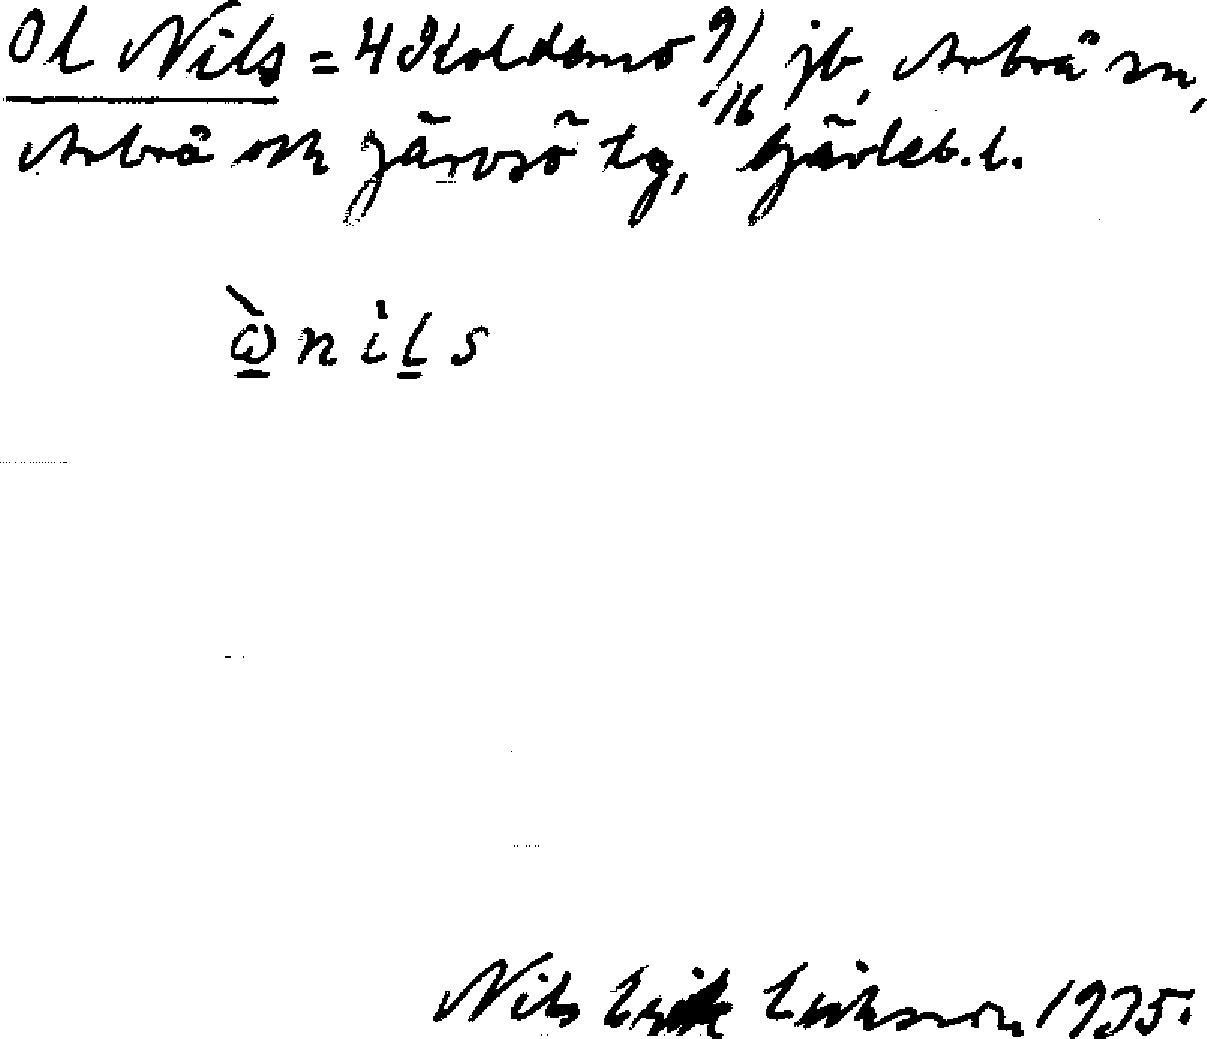 Ol Nils = 4 Koldemo 9/16 jb, Arbrå sn,
Arbrå och Järvsö tg, Gävleb. l.
ὼnils
Nils Erik Eriksson 1935.